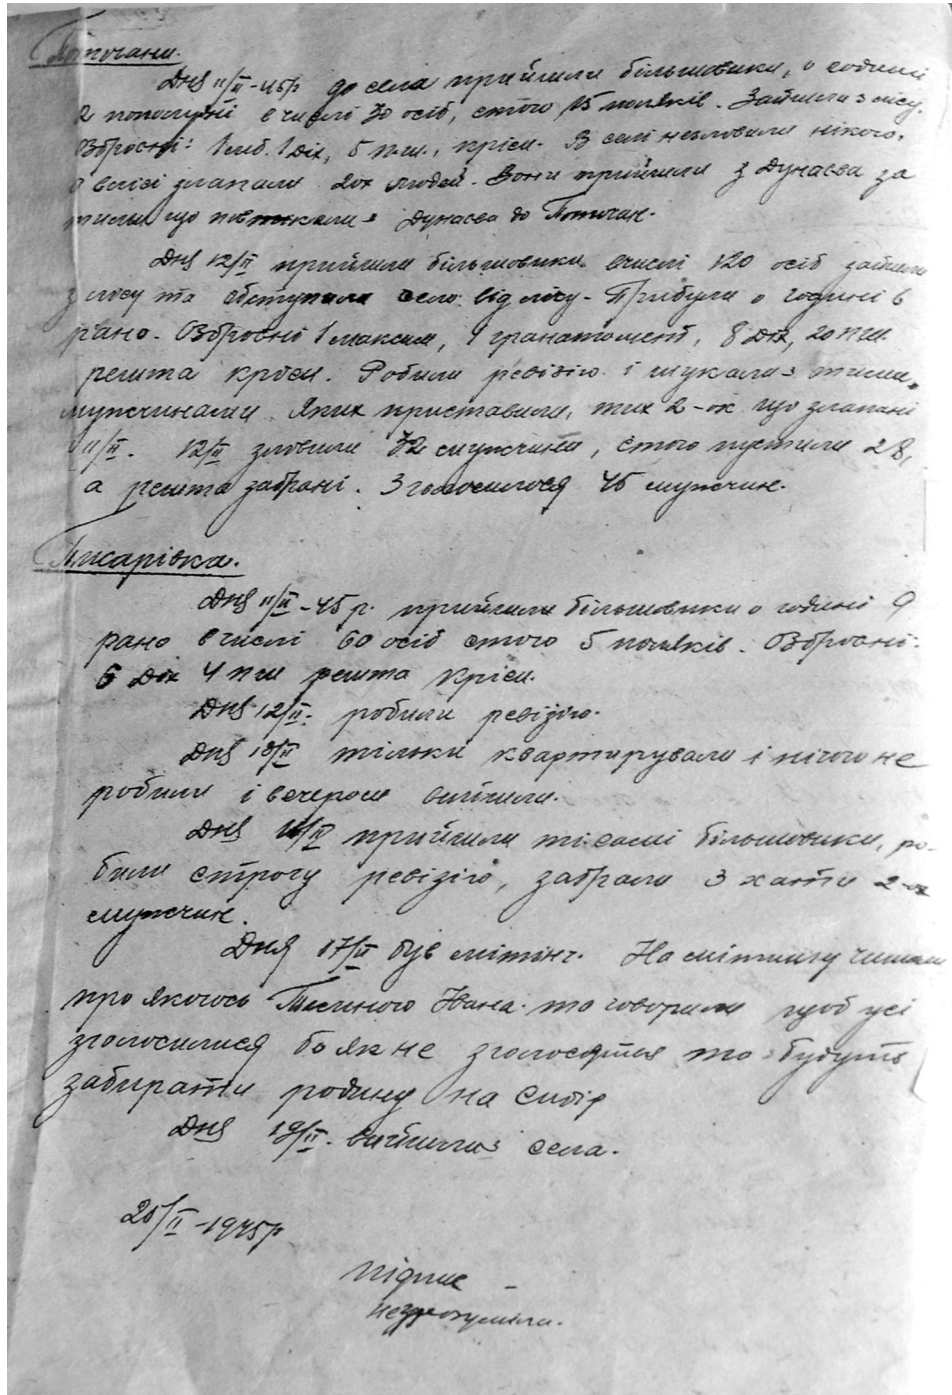 Поточани.
Дня 11/II-45р. до села прийшли більшовики, о годині
2 пополудні в числі 30 осіб, стого 15 поляків. Зайшли з лісу.
Озброєні: 1 скб. 1 Діх, 5 п.п.ш., кріси. В селі незловили нікого,
а в лісі злапали 2ох людей. Вони прийшли з Дунаєва за
тими що повтикали з Дунаєва до Поточан.
Дня 12/II прийшли більшовики вчислі 120 осіб зайшли
з лісу та обступили село від лісу. Прибули о годині 6
рано. Озброєні 1 максим, 1 гранатомет, 8 Діх, 20 ппш.
решта кріси. Робили ревізію і шукали за тими
мужчинами яких приставили, тих 2-ох що злапані
11/II. 12/II зловили 32 мужчини, стого пустили 28,
а решта забрані. Зголосилося 45 мужчин.
Писарівка.
Дня 11/II-45 р. прийшли більшовики о годині 9
рано вчислі 60 осіб стого 5 поляків. Озброєні:
6 Діх 4 ппш решта кріси.
Дня 12/II. робили ревізію.
Дня 13/II тільки квартирували і нічого не
робили і вечером вийшли.
Дня 16/II прийшли ті самі більшовики, ро-
били строгу ревізію, забрали з хати 2-ох
мужчин.
Дня 17/II був мітінг. На мітингу читали
про якогось Івана. то говорили щоб усі
зголосилися бо як не зголосятся то будуть
забирати родину на Сибір
Дня 19/II. вийшли з села.
20/II-1945р
підпис
незрозуміли.